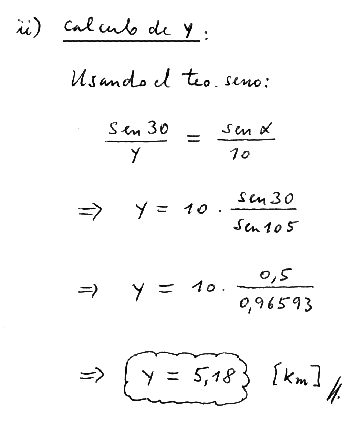 ii) Calculo de y:
Usando el teo. seno:
Sen 30 / y = sen α / 10
⇒ y = 10 · sen 30 / sen 105
⇒ y = 10 · 0,5 / 0,96593
⇒ y = 5,18 [km] //.